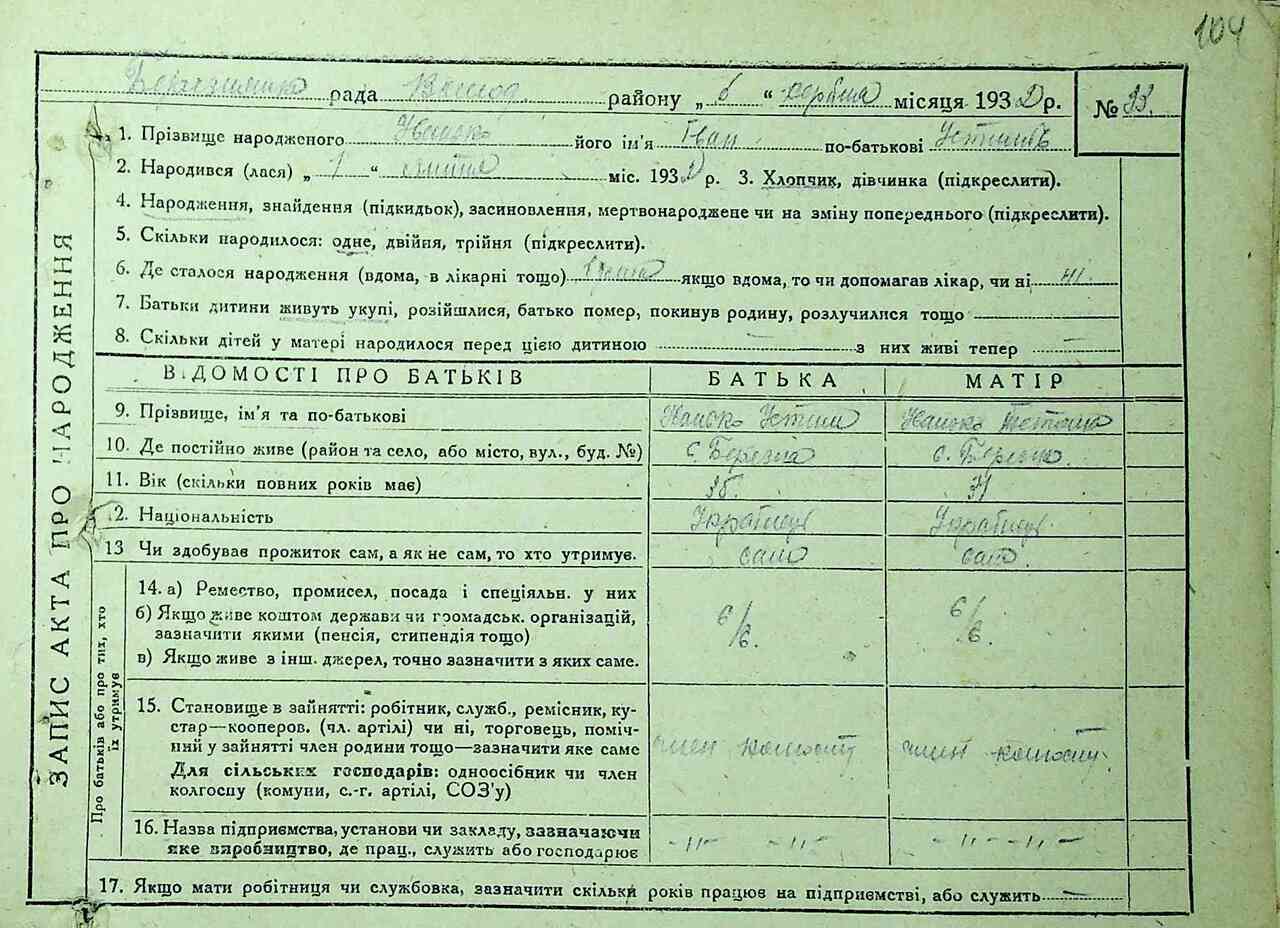 104
рада району „ 6 “ серпня місяця 1932 р. № 33.
1. Прізвище народженого його ім'я Іван по-батькові
2. Народився (лася) „ 1 “ міс. 1932 р. 3. Хлопчик, дівчинка (підкреслити).
4. Народження, знайдення (підкидьок), засиновлення, мертвонароджене чи на зміну попереднього (підкреслити).
5. Скільки народилося: одне, двійня, трійня (підкреслити).
6. Де сталося народження (вдома, в лікарні тощо) якщо вдома, то чи допомагав лікар, чи ні ні.
7. Батьки дитини живуть укупі, розійшлися, батько помер, покинув родину, розлучилися тощо
8. Скільки дітей у матері народилося перед цією дитиною з них живі тепер
ЗАПИС АКТА ПРО НАРОДЖЕННЯ
ВІДОМОСТІ ПРО БАТЬКІВ БАТЬКА МАТІР
9. Прізвище, ім'я та по-батькові
10. Де постійно живе (район та село, або місто, вул., буд. №) с. Березна с. Березна
11. Вік (скільки повних років має)
12. Національність Українець Українець
13 Чи здобував прожиток сам, а як не сам, то хто утримує. само само
Про батьків або про тих, хто їх утримує
14. а) Ремество, промисел, посада і спеціяльн. у них
б) Якщо живе коштом держави чи громадськ. організацій,
зазначити якими (пенсія, стипендія тощо)
в) Якщо живе з інш. джерел, точно зазначити з яких саме.
15. Становище в зайнятті: робітник, служб., ремісник, ку-
стар—кооперов. (чл. артілі) чи ні, торговець, поміч-
ний у зайнятті член родини тощо—зазначити яке саме
Для сільських господарів: одноосібник чи член
колгоспу (комуни, с.-г. артілі, СОЗ'у)
член колгоспу член колгоспу
16. Назва підприємства, установи чи закладу, зазначаючи
яке виробництво, де прац., служить або господарює
-"- -"- -"- -"-
17. Якщо мати робітниця чи службовка, зазначити скільки років працює на підприємстві, або служить